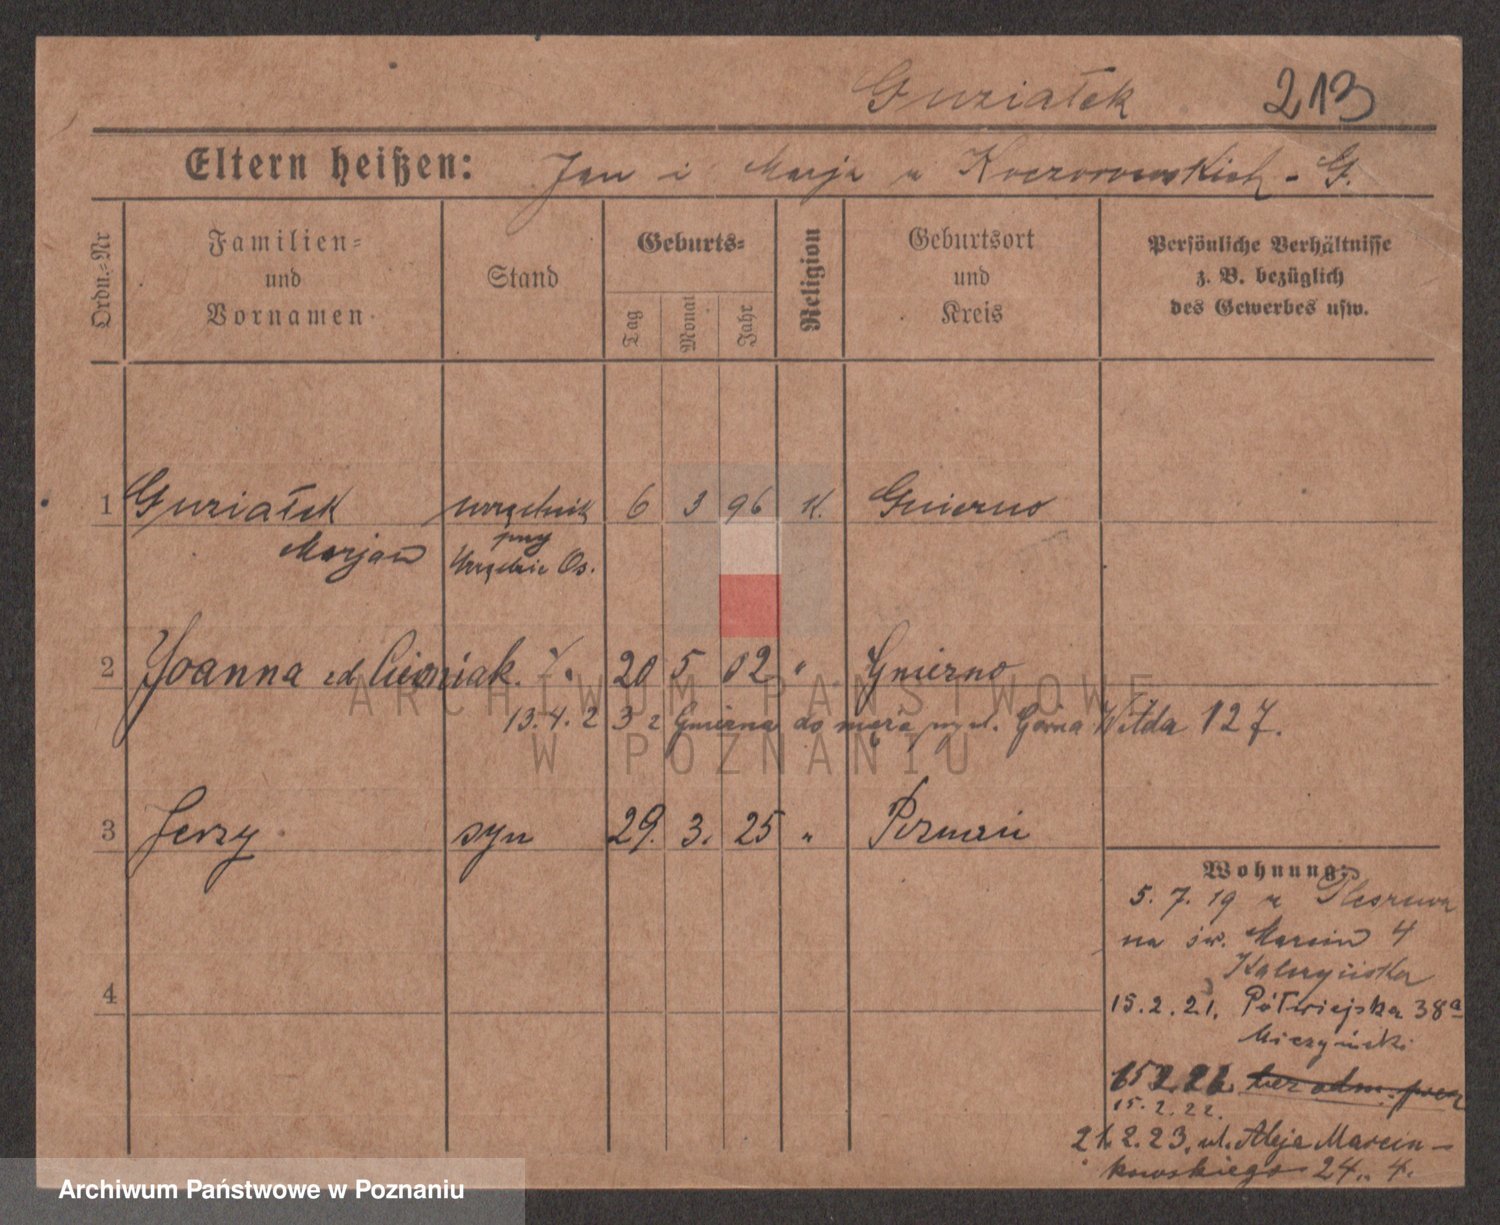 Guziałek 213
Eltern heißen: Jan i Marja z Koczorowskich - G.
Ordn.-Nr
Familien- und Vornamen
Stand
Geburts-
Tag
Monat
Jahr
Religion
Geburtsort und Kreis
Persönliche Verhältnisse z. B. bezüglich des Gewerbes usw.
1 Guziałek urzędnik 6 3 96 K. Gniezno
Marjan przy
Urzędzie Os.
2 Joanna zd. 20 5 02 " Gniezno
13.4.23 z Gniezna do męża Górna Wilda 127.
3 Jerzy syn 29. 3. 25 " Poznań
4
Wohnung:
5. 7. 19 z Pleszewa
na św. Marcin 4
15.2.21. Półwiejska 38a
Mieczyński
15.2.22.
21.2.23. ul. Aleje Marcin-
kowskiego 24. 4.
ARCHIWUM PAŃSTWOWE
W POZNANIU
Archiwum Państwowe w Poznaniu